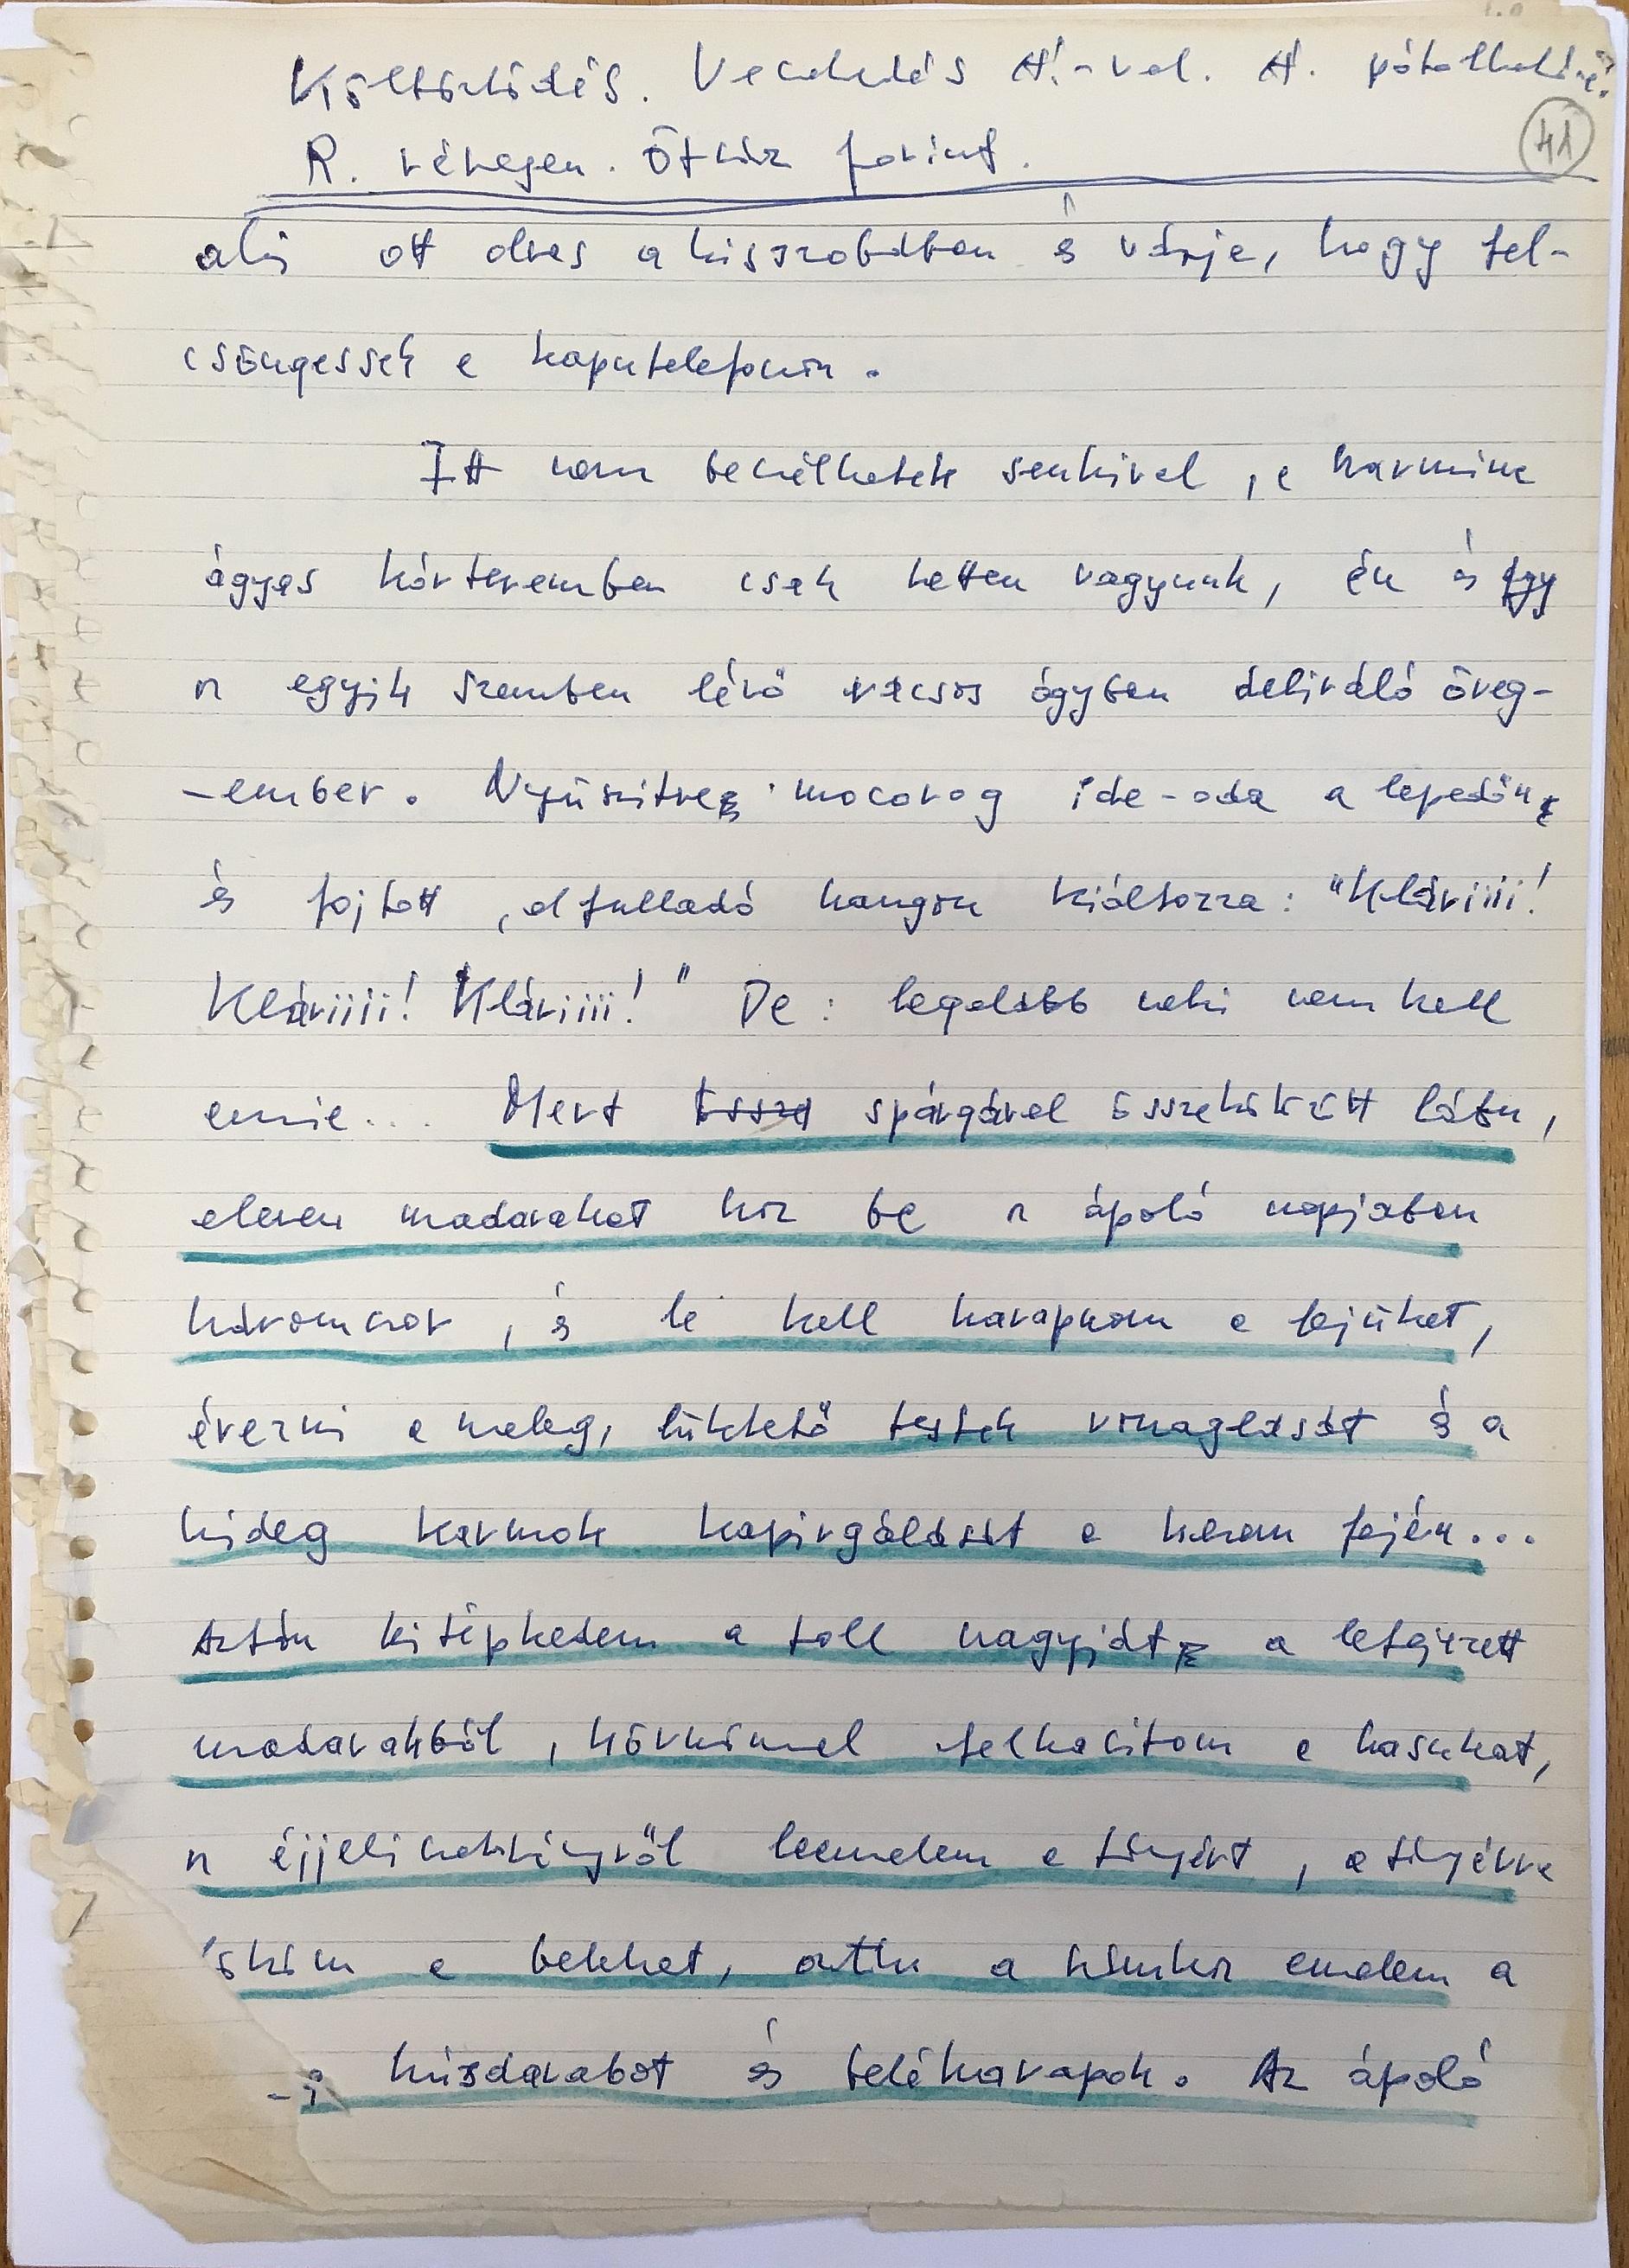 Költözködés. Veszekedés Á.-val. Á. pótolható-e?
R. részegen. Ötszáz forint.
41
aki ott olvas a kisszobában és várja, hogy fel-
csöngessek a kaputelefonon.
Itt nem beszélhetek senkivel, a harminc
ágyas kórteremben csak ketten vagyunk, én és egy
az egyik szemben lévő rácsos ágyban deliráló öreg-
-ember. Nyüszítve mocorog ide-oda a lepedőn
és fojtott, elfulladó hangon kiáltozza: "Kláriiii!
Kláriiii! Kláriiii!" De: legalább neki nem kell
ennie... Mert össze spárgával összekötözött lábú,
eleven madarakat hoz be az ápoló napjában
háromszor, és le kell harapnom a fejüket,
érezni a meleg, lüktető testek vonaglását és a
hideg karmok kapirgálását a kezem fején...
Aztán kitépkedem a toll nagyját a lefejezett
madarakból, körmömmel felhasítom a hasukat,
az éjjeliszekrényről leemelem a tányért, a tányérra
a beleket, aztán a számhoz emelem a
húsdarabot és beléharapok. Az ápoló